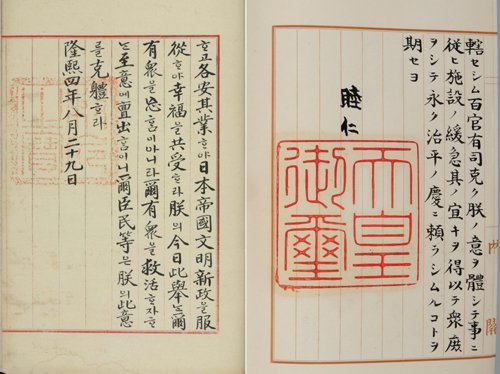 ᄒᆞ고各安其業ᄒᆞ야日本帝國文明新政을服
從ᄒᆞ야幸福을共受ᄒᆞ라朕의今日此擧ᄂᆞᆫ爾
有衆을忘홈이아니라爾有衆을救活ᄒᆞ자ᄒᆞ
는至意에亶出홈이니爾臣民等은朕의此意
를克體ᄒᆞ라
隆熙四年八月二十九日
轄セシム百官有司克ク朕ノ意ヲ體シテ事ニ
從ヒ施設ノ緩急其ノ宜キヲ得以テ衆庶
ヲシテ永ク治平ノ慶ニ頼ラシムルコトヲ
期セヨ
睦仁
天皇
御璽
内閣